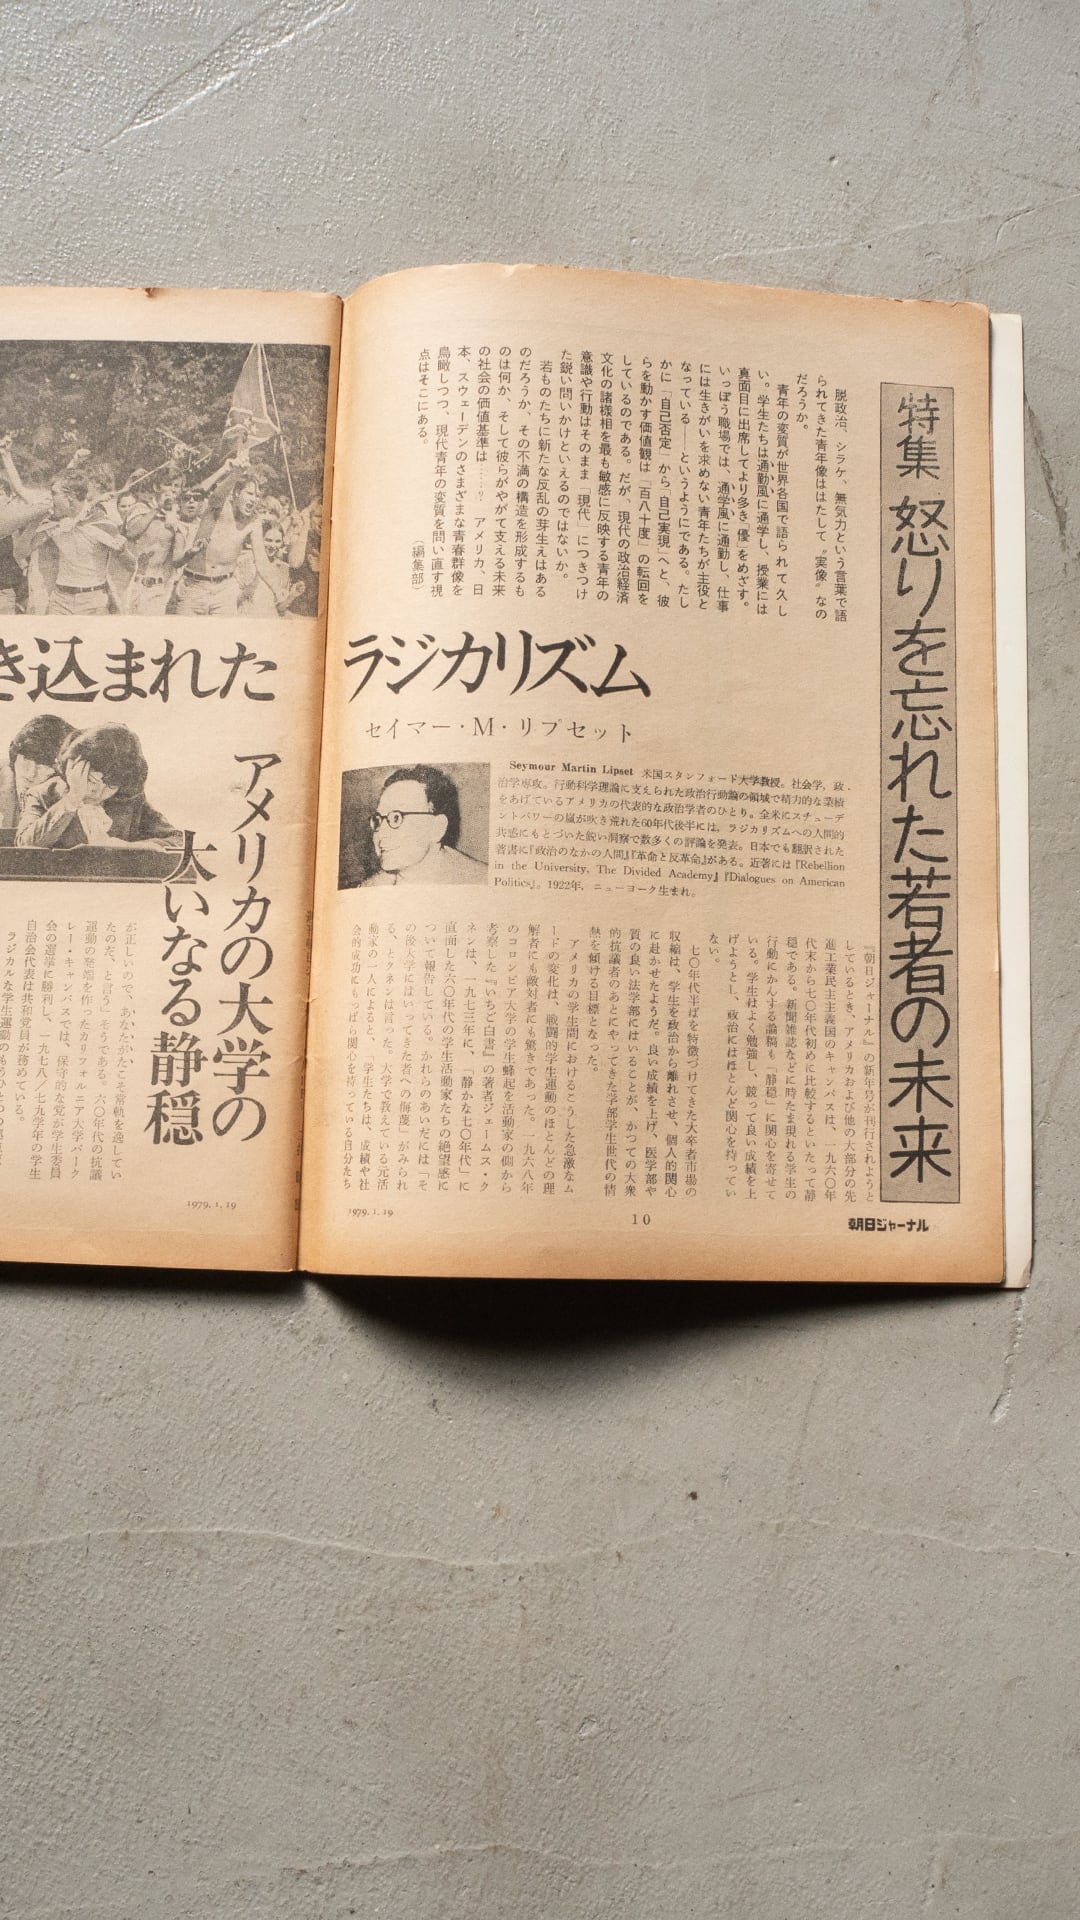 特集 怒りを忘れた若者の未来
脱政治、シラケ、無気力という言葉で語
られてきた青年像ははたして〝実像〟なの
だろうか。
青年の変質が世界各国で語られて久し
い。学生たちは通勤風に通学し、授業には
真面目に出席してより多き「優」をめざす。
いっぽう職場では、通学風に通勤し、仕事
には生きがいを求めない青年たちが主役と
なっている――というようにである。たし
かに「自己否定」から「自己実現」へと、彼
らを動かす価値観は「百八十度」の転回を
しているのである。だが、現代の政治経済
文化の諸様相を最も敏感に反映する青年の
意識や行動はそのまま「現代」につきつけ
た鋭い問いかけといえるのではないか。
若ものたちに新たな反乱の芽生えはある
のだろうか、その不満の構造を形成するも
のは何か、そして彼らがやがて支える未来
の社会の価値基準は……? アメリカ、日
本、スウェーデンのさまざまな青春群像を
鳥瞰しつつ、現代青年の変質を問い直す視
点はそこにある。
(編集部)
ラジカリズム
セイマー・M・リプセット
Seymour Martin Lipset 米国スタンフォード大学教授。社会学，政
治学専攻。行動科学理論に支えられた政治行動論の領域で精力的な業績
をあげているアメリカの代表的な政治学者のひとり。全米にスチューデ
ントパワーの嵐が吹き荒れた60年代後半には，ラジカリズムへの人間的
共感にもとづいた鋭い洞察で数多くの評論を発表。日本でも翻訳された
著書に『政治のなかの人間』『革命と反革命』がある。近著には『Rebellion
in the University, The Divided Academy』『Dialogues on American
Politics』。1922年，ニューヨーク生まれ。
『朝日ジャーナル』の新年号が刊行されようと
しているとき、アメリカおよび他の大部分の先
進工業民主主義国のキャンパスは、一九六〇年
代末から七〇年代初めに比較するといたって静
穏である。新聞雑誌などに時たま現れる学生の
行動にかんする論稿も「静穏」に関心を寄せて
いる。学生はよく勉強し、競って良い成績を上
げようとし、政治にはほとんど関心を持ってい
ない。
七〇年代半ばを特徴づけてきた大卒者市場の
収縮は、学生を政治から離れさせ、個人的関心
に赴かせたようだ。良い成績を上げ、医学部や
質の良い法学部にはいることが、かつての大衆
的抗議者のあとにやってきた学部学生世代の情
熱を傾ける目標となった。
アメリカの学生間におけるこうした急激なム
ードの変化は、戦闘的学生運動のほとんどの理
解者にも敵対者にも驚きであった。一九六八年
のコロンビア大学の学生蜂起を活動家の側から
考察した『いちご白書』の著者ジェームス・ク
ネンは、一九七三年に、「静かな七〇年代」に
直面した六〇年代の学生活動家たちの絶望感に
ついて報告している。かれらのあいだには「そ
の後大学にはいってきた者への侮蔑」がみられ
る、とクネンは言った。大学で教えている元活
動家の一人によると、「学生たちは、成績や社
会的成功にもっぱら関心を持っている自分たち
1979. 1. 19
10
朝日ジャーナル
き込まれた
アメリカの大学の
大いなる静穏
が正しいので、あなたがたこそ常軌を逸してい
たのだ、と言う」そうである。六〇年代の抗議
運動の発端を作ったカリフォルニア大学バーク
レー・キャンパスでは、保守的な党が学生委員
会の選挙に勝利し、一九七八／七九学年の学生
自治会代表は共和党員が務めている。
1979. 1. 19